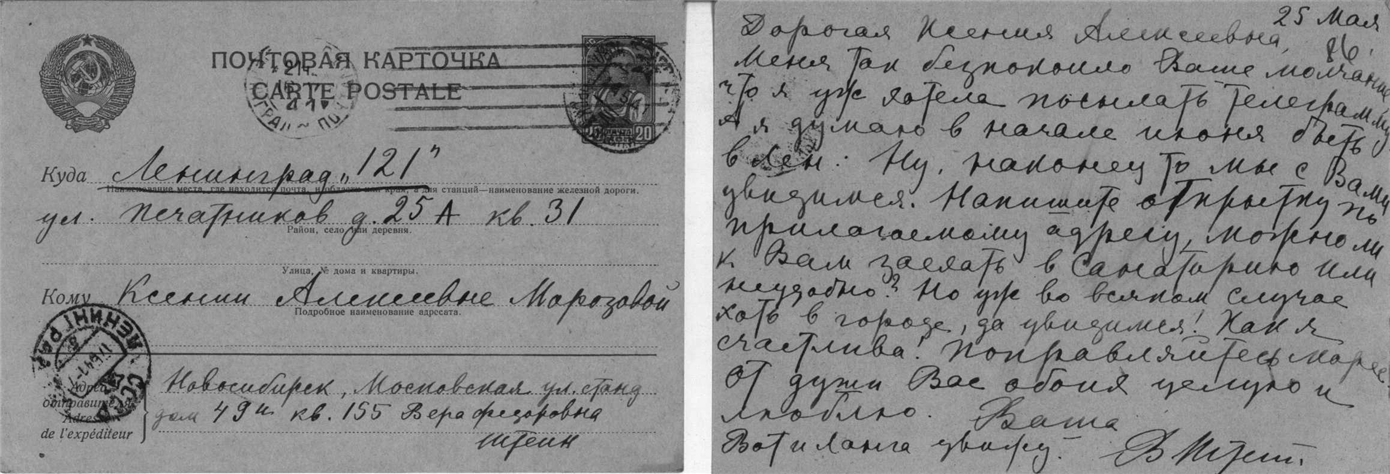 ПОЧТОВАЯ КАРТОЧКА
CARTE POSTALE
20
Куда Ленинград „121"
Наименование места, где находится почта, и области или края, а для станций—наименование железной дороги.
ул. Печатников д. 25 А кв. 31
Район, село или деревня.
Улица, № дома и квартиры.
Кому Ксении Алексеевне Морозовой
Подробное наименование адресата.
ЛЕНИНГРАД
Адрес отправителя
Adresse de l'expéditeur
Новосибирск, Московская ул. станд
дом 49 кв. 155 Вера Федоровна
Штейн
25 Мая
Дорогая Ксения Алексеевна,
Меня так безпокоило Ваше молчание
что я уж хотела посылать телеграмму
А я думаю в начале июня быть
в Лен. Ну, наконец то мы с Вами
увидимся. Напишите открытку по
прилагаемому адресу, можно ли
к Вам заехать в Санаторию или
неудобно? Но уж во всяком случае
хоть в городе, да увидимся! Как я
счастлива! Поправляйтесь скорее
От души Вас обоих целую и
люблю. Ваша
Вот и Ланга увижу. В Штейн